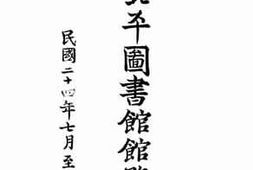 平圖書館館
民國二十四年七月至